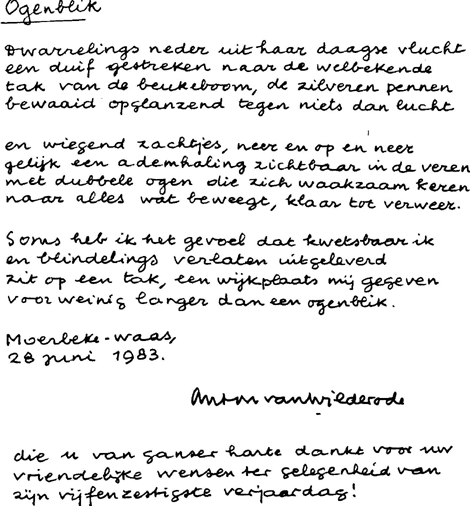 Ogenblik
Dwarrelings neder uit haar daagse vlucht
een duif gestreken naar de welbekende
tak van de beukeboom, de zilveren pennen
bewaaid opglanzend tegen niets dan lucht
en wiegend zachtjes, neer en op en neer
gelijk een ademhaling zichtbaar in de veren
met dubbele ogen die zich waakzaam keren
naar alles wat beweegt, klaar tot verweer.
Soms heb ik het gevoel dat kwetsbaar ik
en blindelings verlaten uitgeleverd
zit op een tak, een wijkplaats mij gegeven
voor weinig langer dan een ogenblik.
Moerbeke-waas,
28 juni 1983.
Anton van Wilderode
die u van ganser harte dankt voor uw
vriendelijke wensen ter gelegenheid van
zijn vijfenzestigste verjaardag!